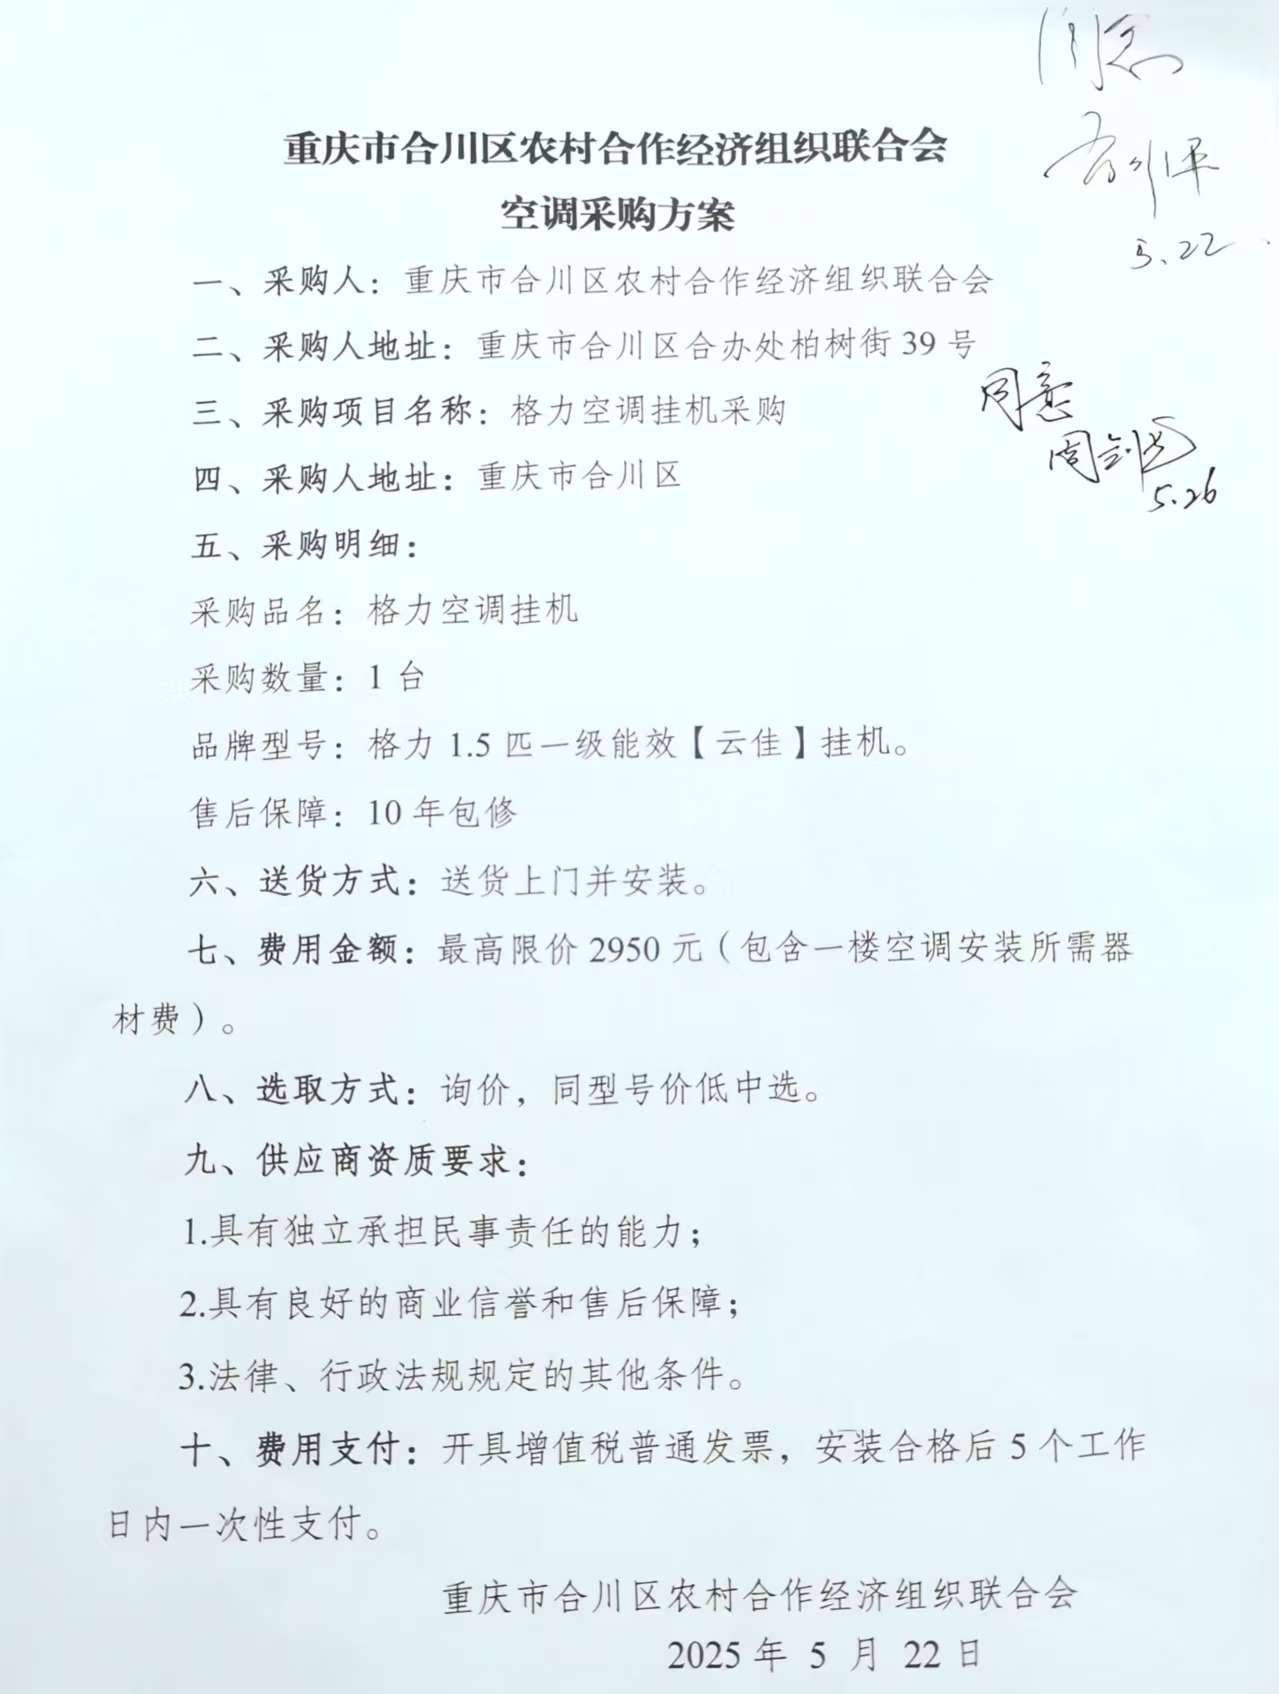 同意
5.22
重庆市合川区农村合作经济组织联合会
空调采购方案
一、采购人：重庆市合川区农村合作经济组织联合会
二、采购人地址：重庆市合川区合办处柏树街 39 号
三、采购项目名称：格力空调挂机采购
同意
5.26
四、采购人地址：重庆市合川区
五、采购明细：
采购品名：格力空调挂机
采购数量：1 台
品牌型号：格力 1.5 匹一级能效【云佳】挂机。
售后保障：10 年包修
六、送货方式：送货上门并安装。
七、费用金额：最高限价 2950 元（包含一楼空调安装所需器
材费）。
八、选取方式：询价，同型号价低中选。
九、供应商资质要求：
1.具有独立承担民事责任的能力；
2.具有良好的商业信誉和售后保障；
3.法律、行政法规规定的其他条件。
十、费用支付：开具增值税普通发票，安装合格后 5 个工作
日内一次性支付。
重庆市合川区农村合作经济组织联合会
2025 年 5 月 22 日